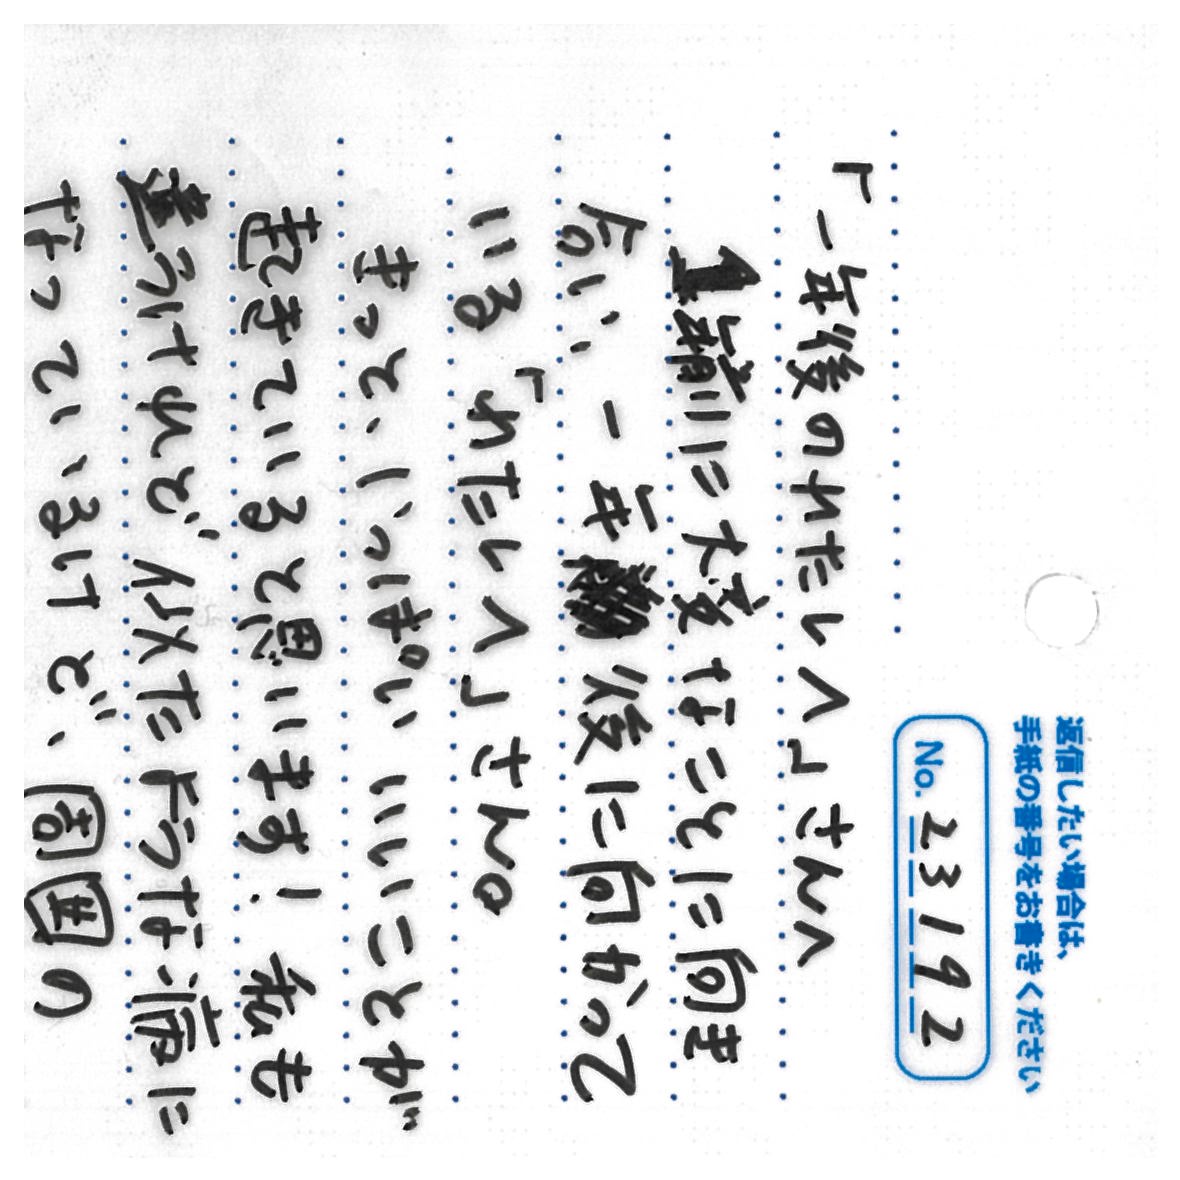 返信したい場合は、
手紙の番号をお書きください
No. 23192
「一年後のわたしへ」さんへ
1年前に大変なことに向き
合い、一年後に向かって
いる「わたしへ」さん。
きっと、いっぱい いいことが
起きていると思います！ 私も
違うけれど 似たような病に
なっているけど、周囲の